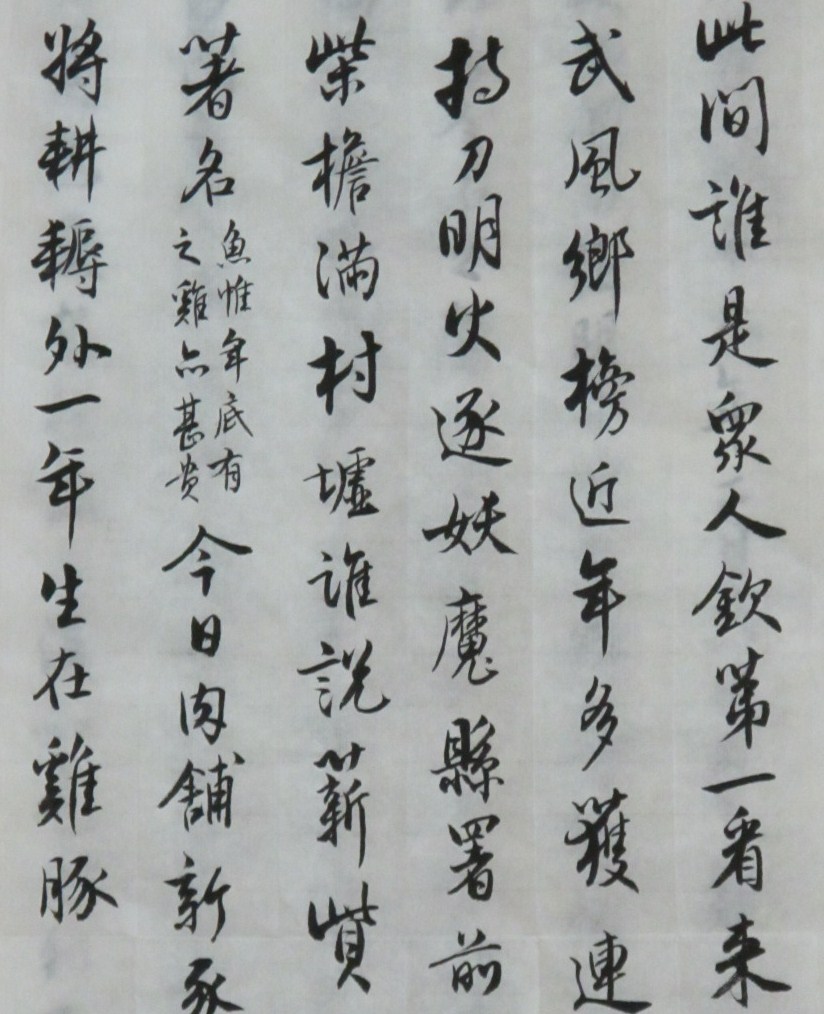 此間誰是眾人欽第一看来
武風鄉榜近年多獲連
持刀明火逐妖魔縣署前
柴檐滿村墟誰説薪貲
著名
魚惟年底有
之雞亦甚贵
今日肉舖新豕
將耕耨外一年生在雞豚